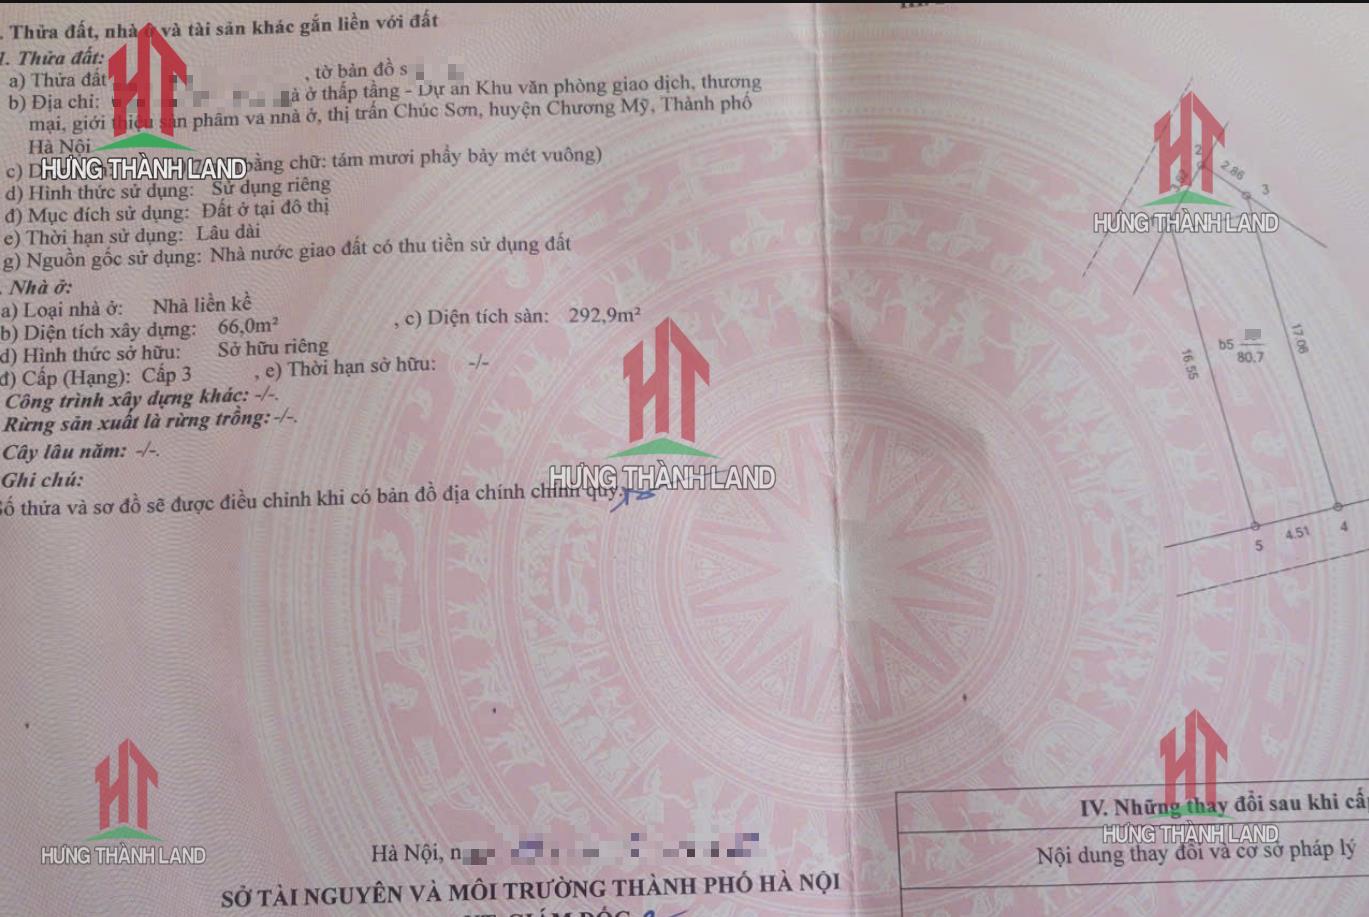 . Thửa đất, nhà ở và tài sản khác gắn liền với đất
1. Thửa đất:
a) Thửa đất , tờ bản đồ s
b) Địa chỉ: à ở thấp tầng - Dự án Khu văn phòng giao dịch, thương
mại, giới thiệu sản phẩm và nhà ở, thị trấn Chúc Sơn, huyện Chương Mỹ, Thành phố
Hà Nội
c) D bằng chữ: tám mươi phẩy bảy mét vuông)
d) Hình thức sử dụng: Sử dụng riêng
đ) Mục đích sử dụng: Đất ở tại đô thị
e) Thời hạn sử dụng: Lâu dài
g) Nguồn gốc sử dụng: Nhà nước giao đất có thu tiền sử dụng đất
. Nhà ở:
a) Loại nhà ở: Nhà liền kề
b) Diện tích xây dựng: 66,0m² , c) Diện tích sàn: 292,9m²
d) Hình thức sở hữu: Sở hữu riêng
đ) Cấp (Hạng): Cấp 3 , e) Thời hạn sở hữu: -/-
Công trình xây dựng khác: -/-.
Rừng sản xuất là rừng trồng: -/-.
Cây lâu năm: -/-.
Ghi chú:
Số thửa và sơ đồ sẽ được điều chỉnh khi có bản đồ địa chính chính quy.
Hà Nội, n
SỞ TÀI NGUYÊN VÀ MÔI TRƯỜNG THÀNH PHỐ HÀ NỘI
2
2.86
3
17.06
16.55
b5
80.7
5
4.51
4
IV. Những thay đổi sau khi cấ
Nội dung thay đổi và cơ sở pháp lý
HƯNG THÀNH LAND
HƯNG THÀNH LAND
HƯNG THÀNH LAND
HƯNG THÀNH LAND
HƯNG THÀNH LAND